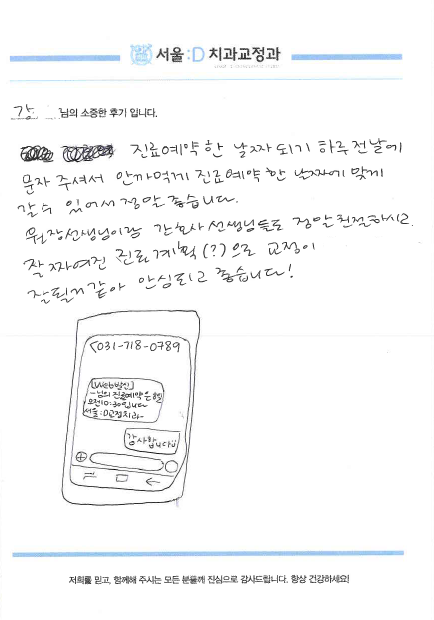 서울 :D 치과교정과
강 님의 소중한 후기 입니다.
진료예약한 날짜 되기 하루 전날에
문자 주셔서 안까먹게 진료예약 한 날짜에 맞게
갈 수 있어서 정말 좋습니다.
원장선생님이랑 간호사 선생님들도 정말 친절하시고.
잘 짜여진 진료계획(?)으로 교정이
잘 될거 같아 안심되고 좋습니다!
031-718-0789
[Web발신]
-님의 진료예약은
오전10:30입니다
서울:D교정치과-
감사합니다
저희를 믿고, 함께해 주시는 모든 분들께 진심으로 감사드립니다. 항상 건강하세요!